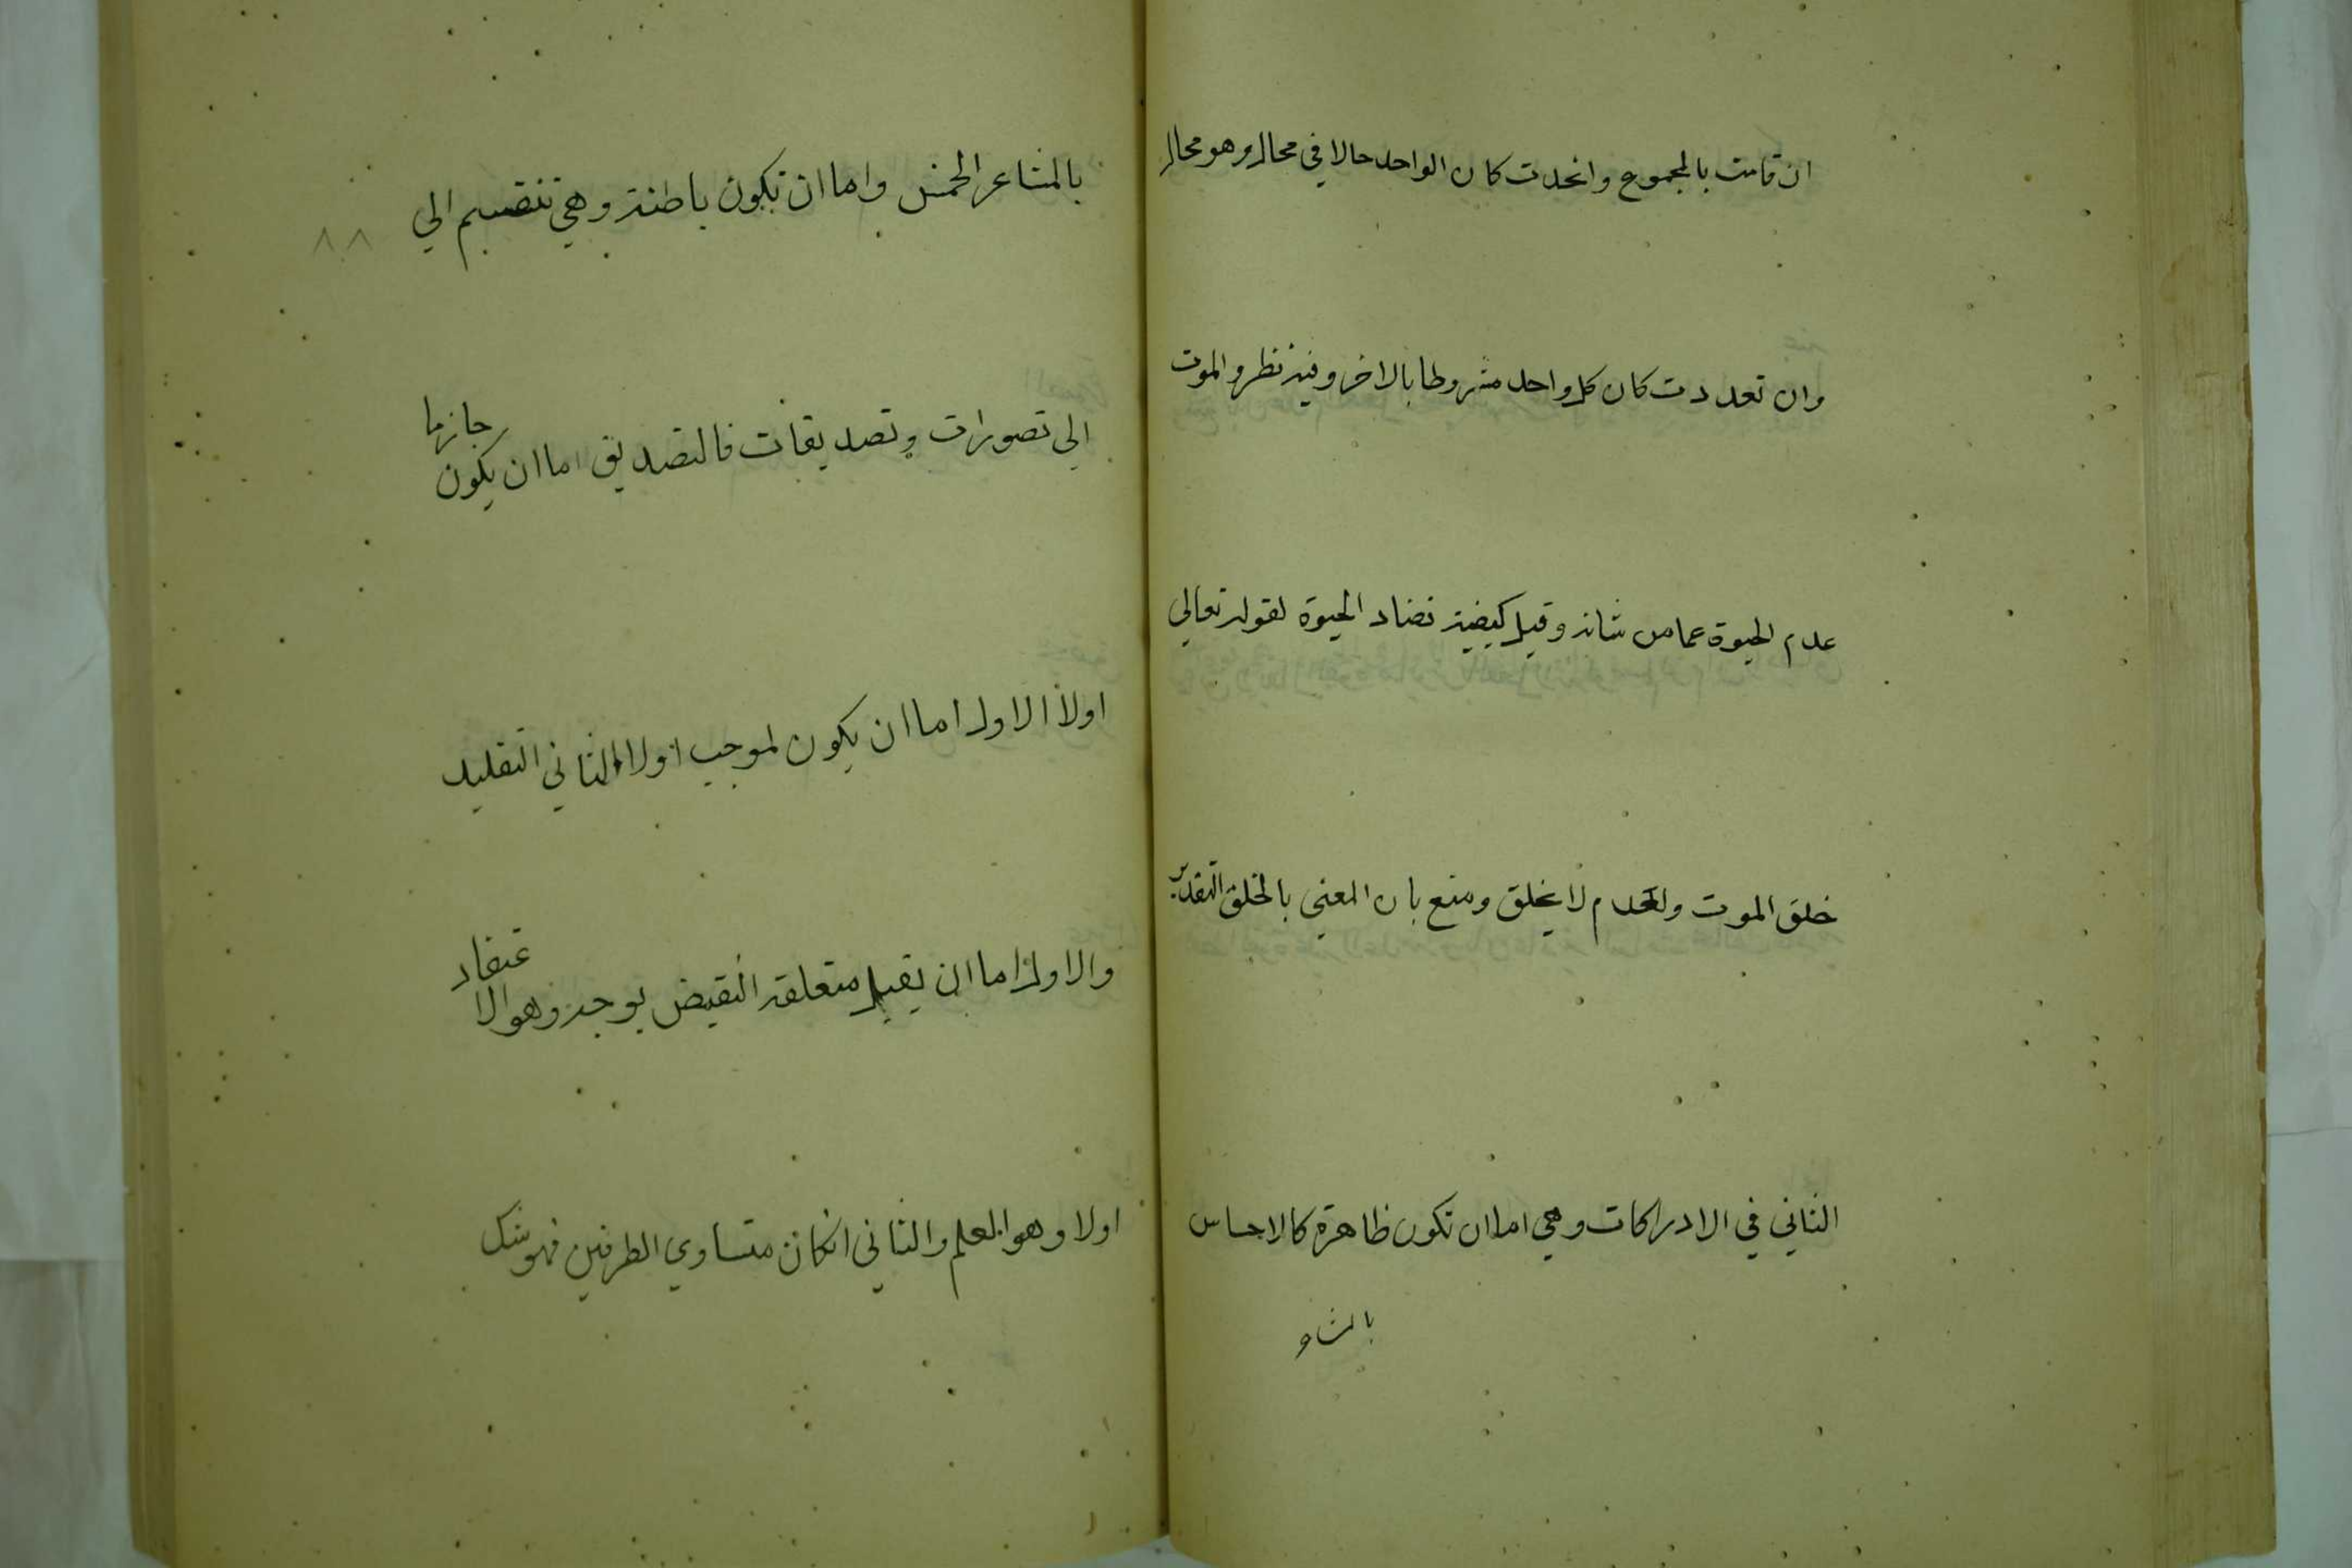 ان قامت بالمجموع واتحدت كان الواحد حالا في محال وهو محال
وان تعددت كان كل واحد مشروطا بالاخر وفيه نظر والموت
عدم الحيوة عما من شانه وقيل كيفية تضاد الحيوة لقوله تعالي
خلق الموت والعدم لا يخلق ومنع بان المعني بالخلق التقدير
الثاني في الادراكات وهي اما ان تكون ظاهرة كالاحساس
بالمشا
بالمشاعر الخمس واما ان تكون باطنة وهي تنقسم الي
٨٨
الي تصورات وتصديقات فالتصديق اما ان يكون جازما
اولا الاول اما ان يكون لموجب اولا الثاني التقليد
والاول اما ان يقبل متعلقه النقيض بوجه وهو الاعتقاد
اولا وهو العلم والثاني انكان متساوي الطرفين فهو شك